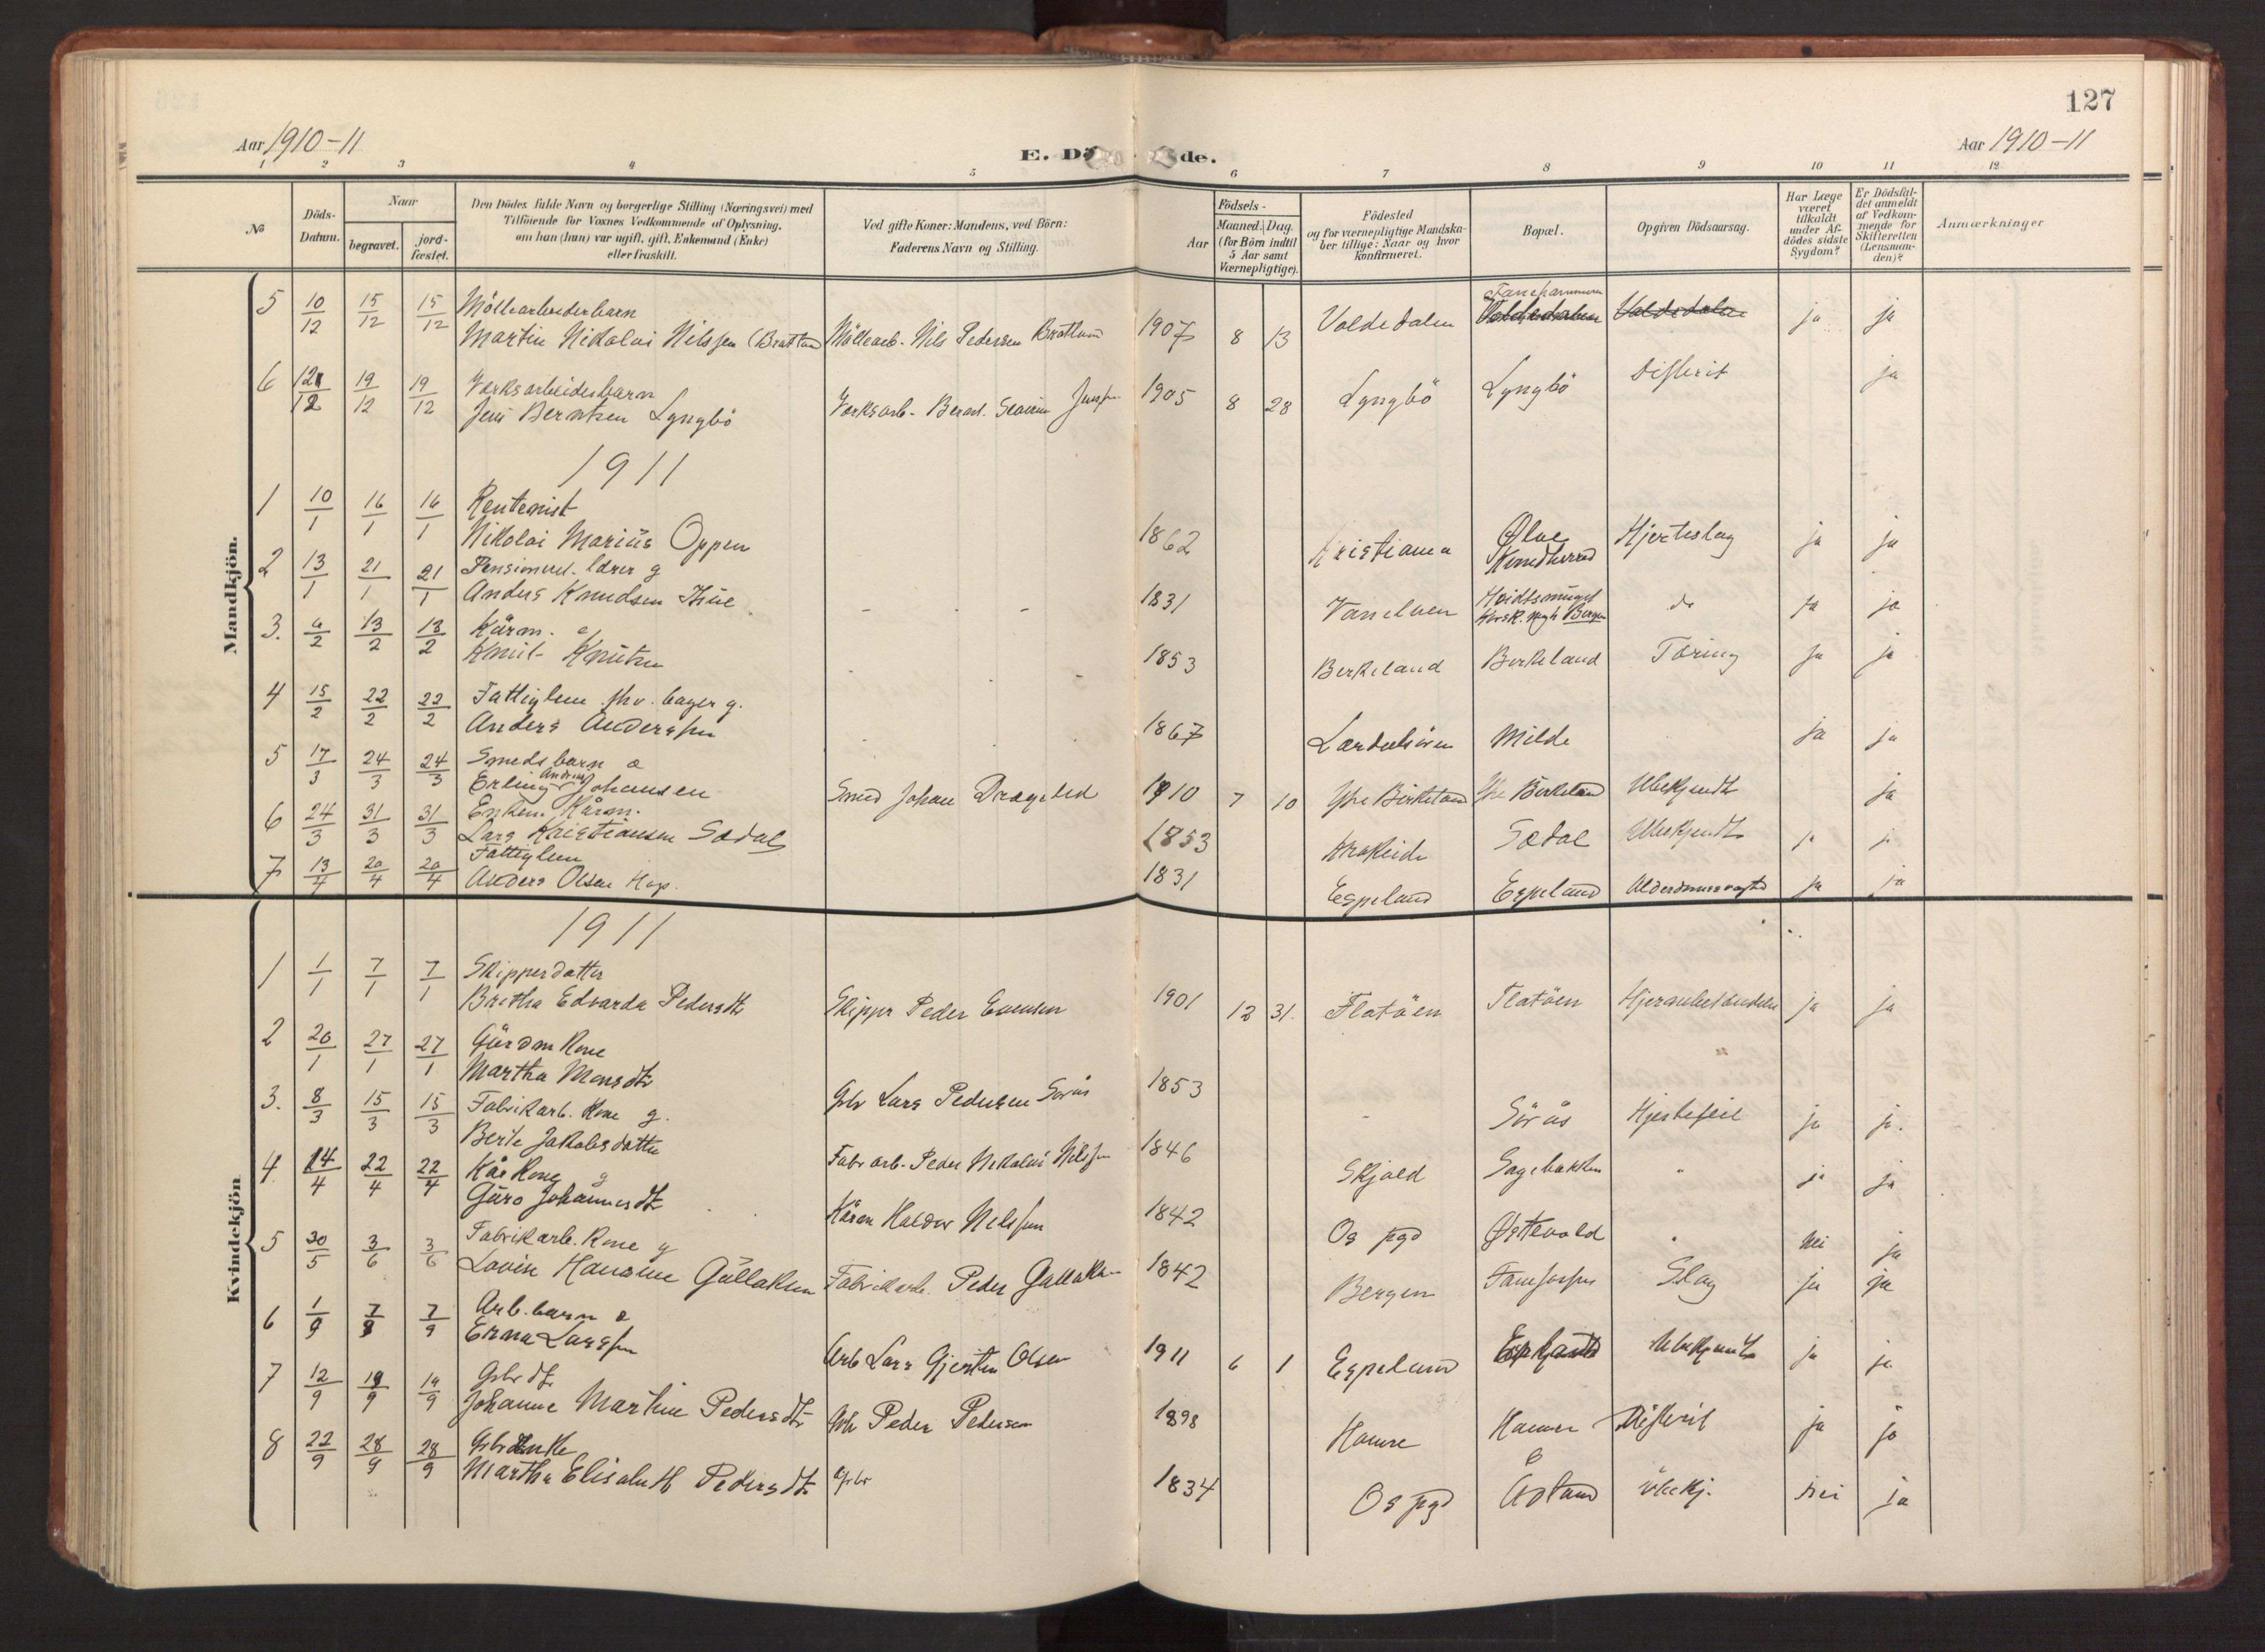 127
Aar 1910-11
E. Dö de.
Aar 1910-11
1 2 3 4 5 6 7 8 9 10 11 12
No
Döds-Datum.
Naar
begravet.
jord-fæstet.
Den Dödes fulde Navn og borgerlige Stilling (Næringsvei) med
Tilföiende for Voxnes Vedkommende af Oplysning,
om han (hun) var ugift, gift, Enkemand (Enke)
eller fraskilt.
Ved gifte Koner: Mandens, ved Börn:
Faderens Navn og Stilling.
Födsels-
Aar
Maaned. Dag.
(for Börn indtil
5 Aar samt
Værnepligtige).
Födested
og for værnepligtige Mandska-
ber tillige: Naar og hvor
konfirmeret.
Bopæl.
Opgiven Dödsaarsag.
Har Læge
været
tilkaldt
under Af-
dödes sidste
Sygdom?
Er Dödsfal-
det anmeldt
af Vedkom-
mende for
Skifteretten
(Lensman-
den)?
Anmærkninger
Mandkjön.
5 10/12 15/12 15/12 Möllearbeiderbarn
Martin Nikolai Nilssen (Brattland Möllearb. Nils Pedersen Brattland 1907 8 13 Valdedalen Valdedalen Valdedalen ja ja
6 12/12 19/12 19/12 Verksarbeiderbarn
Jens Berntsen Lyngbö Verksarb. 1905 8 28 Lyngbö Lyngbö Difterit ja
1911
1 10/1 16/1 16/1 Rentenist
Nikolai Marius Oppen 1862 Kristiania Ølve Kvindherred Hjerteslag ja ja
2 13/1 21/1 21/1 Pensioneret lærer g
Anders Knudsen Thue 1831 Vanelven Bergen do ja ja
3. 6/2 13/2 13/2 Kårm.
Knut Knutsen 1853 Birkeland Birkeland Tæring ja ja
4 15/2 22/2 22/2 Fattiglem fhv. bager g.
Anders Anderssen 1867 Lærdalsören Milde ja ja
5 17/3 24/3 24/3 Smedsbarn
Erling Andreas Johansen Smed Johan Dragsted 1910 7 10 Yhe Birkeland Yhe Birkeland Ubekjendt ja
6 24/3 31/3 31/3 Enkem. Kårm.
Lars Kristiansen Sædal 1853 Sædal Ubekjendt ja ja
7 13/4 20/4 20/4 Fattiglem
Anders Olsen Hop. 1831 Espeland Espeland Alderdomssvaghed ja ja
Kvindekjön
1911
1 1/1 7/1 7/1 Skipperdatter
Bretha Edvarda Pedersdtr Skipper Peder 1901 12 31. Flatöen Flatöen ja ja
2 20/1 27/1 27/1 Gårdm Kone
Martha Monsdtr Gbr Lars Pedersen Sörås 1853 Sörås Hjertefeil ja ja.
3. 8/3 15/3 15/3 Fabrikarb. Kone g.
Berte Jakobsdatter Fabr arb. Peder Nikolai Nilssen 1846 Skjold Sagebakken " ja ja
4 14/4 22/4 22/4 Kår Kone g
Guro Johannesdtr Kårm Haldor Nilssen 1842 Os pgd Østevold " Nei ja
5 30/5 3/6 3/6 Fabrikarb. Kone g
Lovise Hansine Gullaksen Fabrikarb. Peder Gullaksen 1842 Bergen Slag ja ja
6 1/9 7/9 7/9 Arb. barn
Erna Larssen Arb Lars Gjertin Olsen 1911 6 1 Espeland Espeland Ubekjendt ja ja
7 12/9 19/9 19/9 Gbr dtr
Johanne Martine Pedersdtr Gbr Peder Pedersen 1898 Hamre Hamre Difterit ja ja
8 22/9 28/9 28/9 Gbr Enke
Martha Elisabeth Pedersdtr Gbr 1834 Os pgd Åstand Ubekj. nei ja